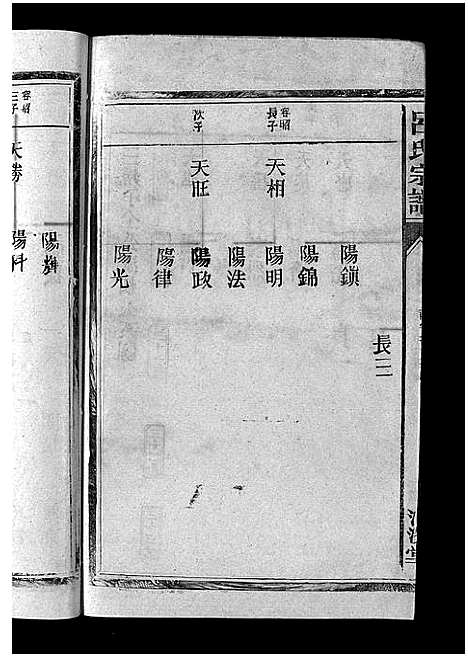 呂氏宗譜
長三
陽鎖
陽錦
容昭長子
天相
陽明
陽法
次子
天旺
陽政
陽律
陽光
陽輝
容昭三子
天勝
陽科